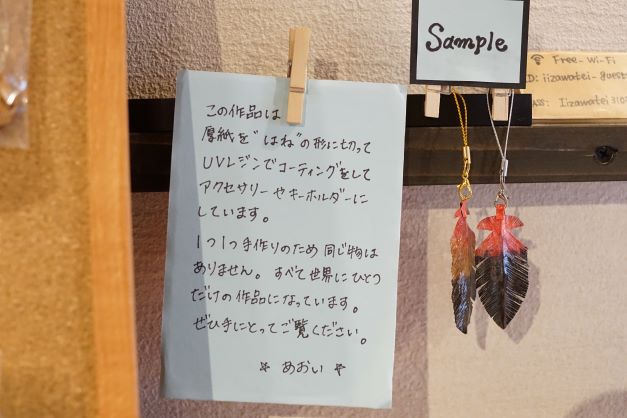 この作品は
厚紙を"はね"の形に切って
UVレジンでコーティングをして
アクセサリーやキーホルダーに
しています。
1つ1つ手作りのため 同じ物は
ありません。すべて世界にひとつ
だけの作品になっています。
ぜひ手にとってご覧ください。
☆ あおい ☆
Sample
Free-Wi-Fi
ID: iizawatei-guest
PASS: Iizawatei310